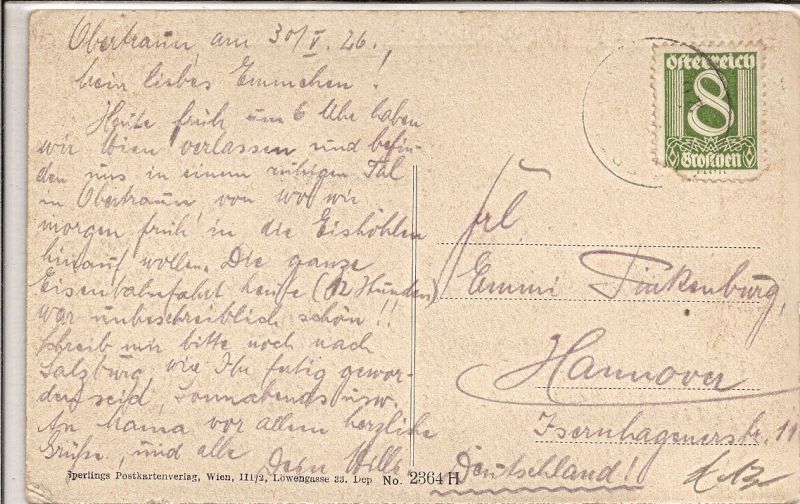 Obertraun, am 30/V. 26.,
Mein liebes Emmchen!
Heute früh um 6 Uhr haben
wir Wien verlassen und befin-
den uns in einem ruhigen Tal
in Obertraun von wo wir
morgen früh in die Eishöhlen
hinauf wollen. Die ganze
Eisenbahnfahrt heute (12 Stunden)
war unbeschreiblich schön!!
Schreib mir bitte noch nach
Salzburg wie Ihr fertig gewor-
den seid, Sonnabends usw.
An Mama vor allem herzliche
Grüße, und alle Dein Willi
Sperlings Postkartenverlag, Wien, III/2, Löwengasse 33. Dep No. 2364 H
Österreich
8
Groschen
Frl.
Emmi Finkenburg,
Hannover
Isernhagenerstr. 11
Deutschland!